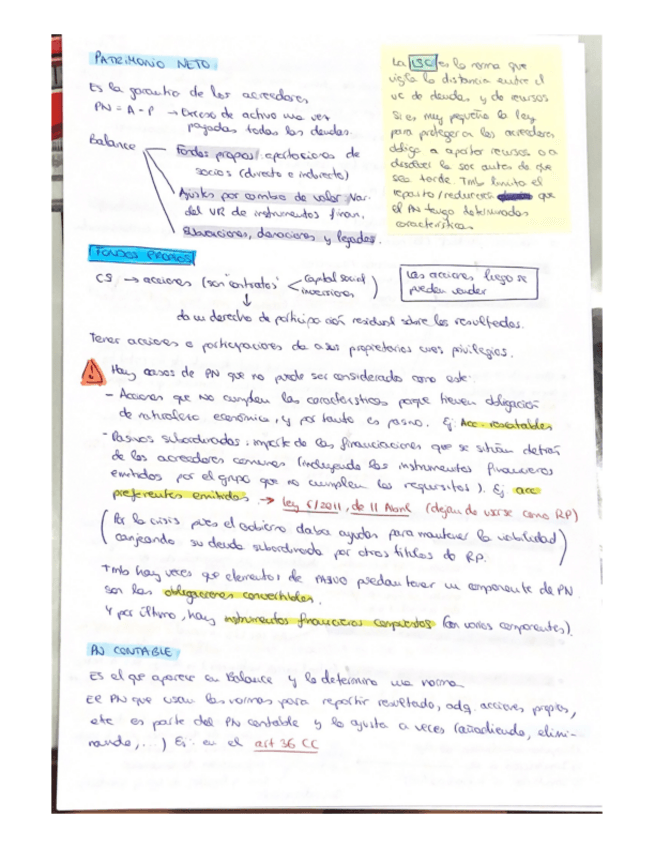 PATRIMONIO NETO
Es la garantía de los acreedores
PN = A - P → Exceso de activo una vez
pagadas todas las deudas.
Balance
Fondos propios: aportaciones de
socios (directa e indirecta)
Ajustes por cambio de valor. Var.
del VR de instrumentos finan.
Subvenciones, donaciones y legados.
La LSC es la norma que
vigila la distancia entre el
de deudas y de recursos
Si es muy pequeña la ley
para proteger a los acreedores
obliga a aportar recursos o a
disolver la soc antes de que
sea tarde. Tmb limita el
reparto/reducción que
el PN tenga determinadas
características
FONDOS PROPIOS
CS → acciones (son "contratos" capital social
inversiones)
Las acciones luego se
pueden vender
da un derecho de participación residual sobre los resultados.
Tener acciones o participaciones da a sus propietarios unos privilegios.
Hay casos de PN que no puede ser considerado como este:
- Acciones que no cumplen las características porque tienen obligación
de naturaleza económica, y por tanto es pasivo. Ej: Acc. rescatables
- Pasivos subordinados: importe de las financiaciones que se sitúan detrás
de los acreedores comunes (incluyendo los instrumentos financieros
emitidos por el grupo que no cumplen los requisitos). Ej: acc
preferentes emitidas. → Ley 5/2011, de 11 Abril (dejan de usarse como RP)
(Por la crisis pues el gobierno daba ayudas para mantener la viabilidad
canjeando su deuda subordinada por otros títulos de RP.)
Tmb hay veces que elementos de PASIVO puedan tener un componente de PN
son las obligaciones convertibles.
Y por último, hay instrumentos financieros compuestos (con varios componentes).
PN CONTABLE
Es el que aparece en Balance y lo determina una norma
El PN que usan las normas para repartir resultado, adq. acciones propias,
etc es parte del PN contable y lo ajusta a veces (añadiendo, elimi-
nando,...) Ej: en el art 36 CC